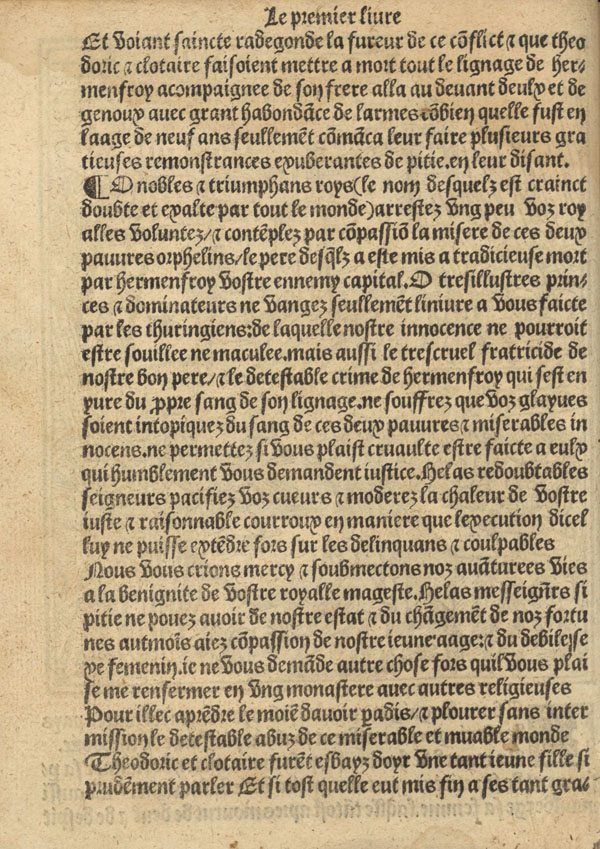 Le premier liure
Et voiant saincte radegonde la fureur de ce cõflict ⁊ que theo
doric ⁊ clotaire faisoient mettre a mort tout le lignage de her⸗
menfroy acompaignee de son frere alla au deuant deulx et de
genoux auec grant habondãce de larmes cõbien quelle fust en
laage de neuf ans seullemẽt cõmãca leur faire plusieurs gra
tieuses remonstrances exuberantes de pitie.en leur disant.
¶O nobles ⁊ triumphans roys(le nom desquelz est crainct
doubte et exalte par tout le monde)arrestez vng peu voz roy
alles voluntez/⁊ contẽplez par cõpassiõ la misere de ces deux
pauures orphelins/le pere desq̃lz a este mis a tradicieuse mort
par hermenfroy vostre ennemy capital.O tresillustres prin⸗
ces ⁊ dominateurs ne vangez seullemẽt liniure a vous faicte
par les thuringiens:de laquelle nostre innocence ne pourroit
estre souillee ne maculee.mais aussi le trescruel fratricide de
nostre bon pere/⁊ le detestable crime de hermenfroy qui sest en
yure du ꝓpre sang de son lignage.ne souffrez que voz glayues
soient intopiquez du sang de ces deux pauures ⁊ miserables in
nocens.ne permettez si vous plaist cruaulte estre faicte a eulx
qui humblement vous demandent iustice.Helas redoubtables
seigneurs pacifiez voz cueurs ⁊ moderez la chaleur de vostre
iuste ⁊ raisonnable courroux en maniere que lexecution dicel
luy ne puisse extẽdre fors sur les delinquans ⁊ coulpables
Nous vous crions mercy ⁊ soubmectons noz auãturees vies
a la benignite de vostre royalle mageste.Helas messeigñrs si
pitie ne pouez auoir de nostre estat ⁊ du chãgemẽt de noz fortu
nes autmoĩs aiez cõpassion de nostre ieune aage:⁊ du debile se
xe femenin.ie ne vous demãde autre chose fors quil vous plai
se me renfermer en vng monastere auec autres religieuses
Pour illec aprẽdre le moiẽ dauoir ꝑadis/⁊ plourer sans inter
mission le detestable abuz de ce miserable et muable monde
Theodoric et clotaire furẽt esbayz doyr vne tant ieune fille si
prudẽment parler Et si tost quelle eut mis fin a ses tant gra⸗